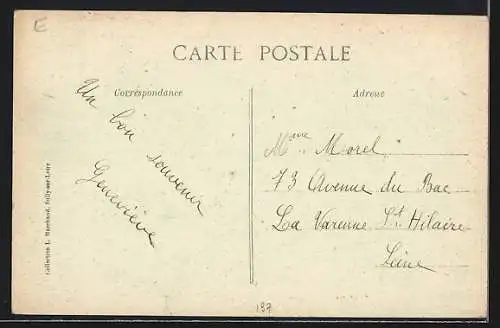 E
CARTE POSTALE
Correspondance
Adresse
Un bon souvenir
Geneviève
Mme Morel
73 Avenue du Bac
La Varenne St Hilaire
Seine
Collection L. Marchand, Sully-sur-Loire
197